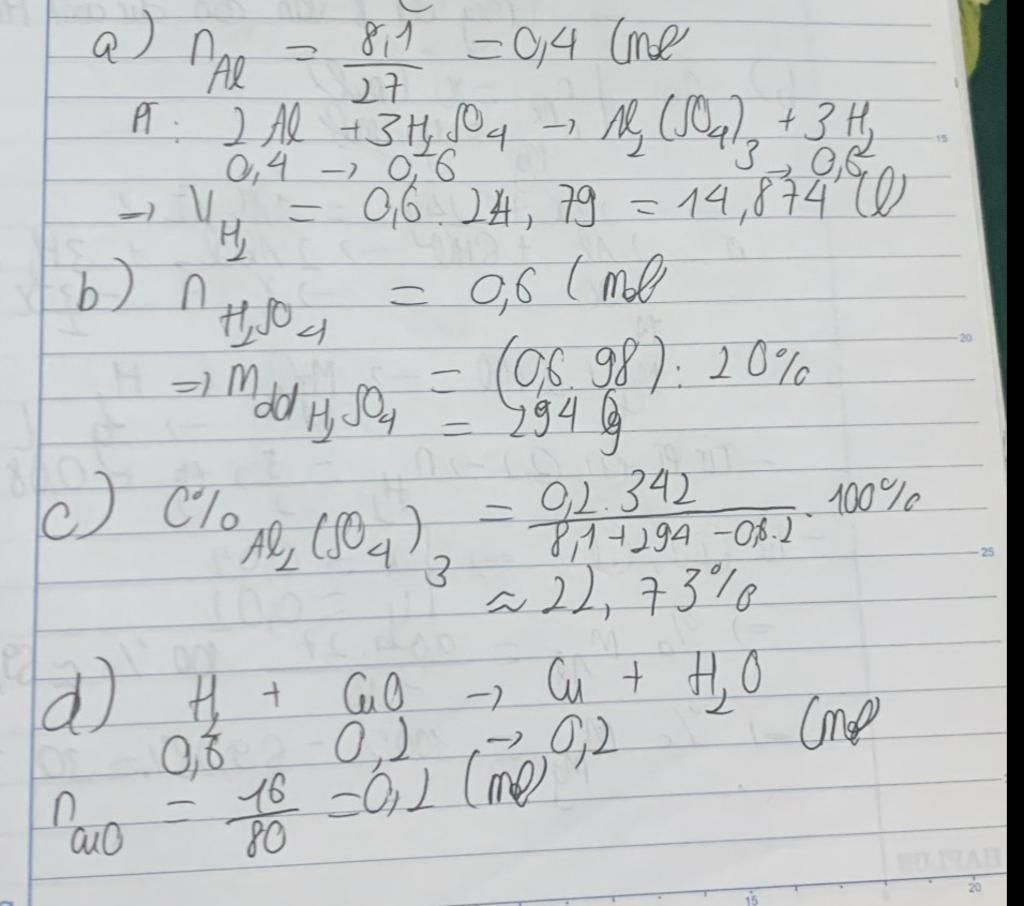 a) n Al = 8,1 / 27 = 0,4 (mol
Pt : 2Al + 3H2SO4 → Al2(SO4)3 + 3H2
0,4 → 0,6 → 0,6
→ VH2 = 0,6 . 24,79 = 14,874 (l)
b) n H2SO4 = 0,6 (mol
⇒ m dd H2SO4 = (0,6 . 98) : 20%
= 294 g
c) C% Al2(SO4)3 = 0,2 . 342 / 8,1 + 294 - 0,6.2 . 100%
≈ 22,73%
d) H2 + CuO → Cu + H2O
0,6 0,2 → 0,2 (mol
n CuO = 16 / 80 = 0,2 (mol)
15
20
25
15
20